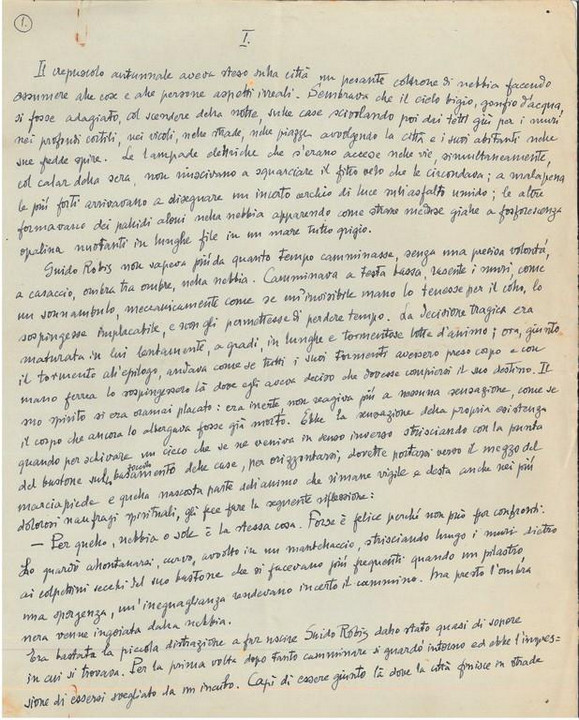 1.
I.
Il crepuscolo autunnale aveva steso sulla città un pesante coltrone di nebbia facendo
assumere alle cose e alle persone aspetti irreali. Sembrava che il cielo bigio, gonfio d'acqua,
si fosse adagiato, col scendere della notte, sulle case scivolando poi dai tetti giù per i muri
nei profondi cortili, nei vicoli, nelle strade, nelle piazze avvolgendo la città e i suoi abitanti nelle
sue fredde spire. Le lampade elettriche che s'erano accese nelle vie, simultaneamente,
col calar della sera, non riuscivano a squarciare il fitto velo che le circondava; a malapena
le più forti arrivavano a disegnare un incerto cerchio di luce sull'asfalto umido; le altre
formavano dei pallidi aloni nella nebbia apparendo come strane meduse gialle a fosforescenza
opalina nuotanti in lunghe file in un mare tutto grigio.
Guido Robis non sapeva più da quanto tempo camminasse, senza una precisa volontà,
a casaccio, ombra tra ombre, nella nebbia. Camminava a testa bassa, rasente i muri, come
un sonnambulo, meccanicamente come se un'invisibile mano lo tenesse per il collo, lo
sospingesse implacabile, e non gli permettesse di perdere tempo. La decisione tragica era
maturata in lui lentamente, a gradi, in lunghe e tormentose lotte d'animo; ora, giunto
il tormento all'epilogo, andava come se tutti i suoi tormenti avessero preso corpo e con
mano ferrea lo sospingessero là dove egli aveva deciso che dovesse compiersi il suo destino. Il
suo spirito si era oramai placato: era inerte, non reagiva più a nessuna sensazione, come se
il corpo che ancora lo albergava fosse già morto. Ebbe la sensazione della propria esistenza
quando per schivare un cieco che se ne veniva in senso inverso strisciando con la punta
del bastone sul basamento delle case, per orizzontarsi, dovette portarsi verso il mezzo del
marciapiede e quella nascosta parte dell'animo che rimane vigile e desta anche nei più
dolorosi naufragi spirituali, gli fece fare la seguente riflessione:
— Per quello, nebbia o sole è la stessa cosa. Forse è felice perché non può far confronti.
Lo guardò allontanarsi, curvo, avvolto in un mantellaccio, strisciando lungo i muri dietro
ai colpettini secchi del suo bastone che si facevano più frequenti quando un pilastro,
una sporgenza, un'ineguaglianza rendevano incerto il cammino. Ma presto l'ombra
nera venne ingoiata dalla nebbia.
Era bastata la piccola distrazione a far uscire Guido Robis dallo stato quasi di sopore
in cui si trovava. Per la prima volta dopo tanto camminare si guardò intorno ed ebbe l'impres=
sione di essersi svegliato da un incubo. Capì di essere giunto là dove la città finisce in strade